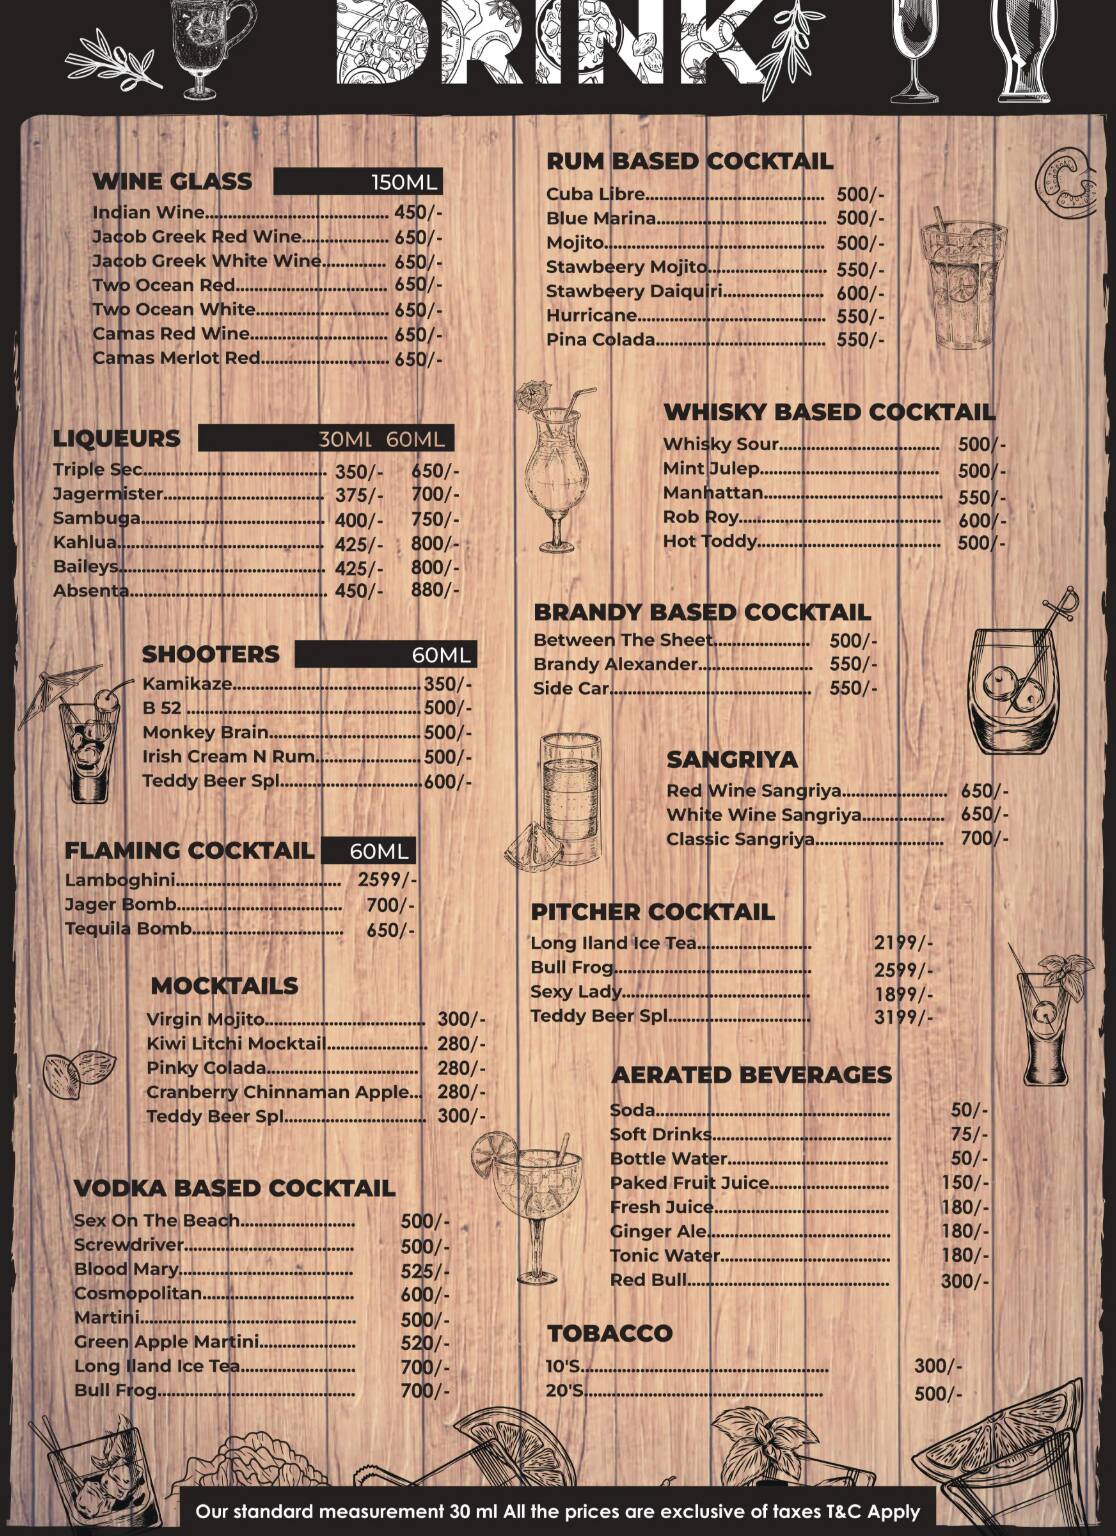 DRINK
WINE GLASS 150ML
Indian Wine 450/-
Jacob Greek Red Wine 650/-
Jacob Greek White Wine 650/-
Two Ocean Red 650/-
Two Ocean White 650/-
Camas Red Wine 650/-
Camas Merlot Red 650/-
LIQUEURS 30ML 60ML
Triple Sec 350/- 650/-
Jagermister 375/- 700/-
Sambuga 400/- 750/-
Kahlua 425/- 800/-
Baileys 425/- 800/-
Absenta 450/- 880/-
SHOOTERS 60ML
Kamikaze 350/-
B 52 500/-
Monkey Brain 500/-
Irish Cream N Rum 500/-
Teddy Beer Spl 600/-
FLAMING COCKTAIL 60ML
Lamboghini 2599/-
Jager Bomb 700/-
Tequila Bomb 650/-
MOCKTAILS
Virgin Mojito 300/-
Kiwi Litchi Mocktail 280/-
Pinky Colada 280/-
Cranberry Chinnaman Apple... 280/-
Teddy Beer Spl 300/-
VODKA BASED COCKTAIL
Sex On The Beach 500/-
Screwdriver 500/-
Blood Mary 525/-
Cosmopolitan 600/-
Martini 500/-
Green Apple Martini 520/-
Long Iland Ice Tea 700/-
Bull Frog 700/-
RUM BASED COCKTAIL
Cuba Libre 500/-
Blue Marina 500/-
Mojito 500/-
Stawbeery Mojito 550/-
Stawbeery Daiquiri 600/-
Hurricane 550/-
Pina Colada 550/-
WHISKY BASED COCKTAIL
Whisky Sour 500/-
Mint Julep 500/-
Manhattan 550/-
Rob Roy 600/-
Hot Toddy 500/-
BRANDY BASED COCKTAIL
Between The Sheet 500/-
Brandy Alexander 550/-
Side Car 550/-
SANGRIYA
Red Wine Sangriya 650/-
White Wine Sangriya 650/-
Classic Sangriya 700/-
PITCHER COCKTAIL
Long Iland Ice Tea 2199/-
Bull Frog 2599/-
Sexy Lady 1899/-
Teddy Beer Spl 3199/-
AERATED BEVERAGES
Soda 50/-
Soft Drinks 75/-
Bottle Water 50/-
Paked Fruit Juice 150/-
Fresh Juice 180/-
Ginger Ale 180/-
Tonic Water 180/-
Red Bull 300/-
TOBACCO
10'S 300/-
20'S 500/-
Our standard measurement 30 ml All the prices are exclusive of taxes T&C Apply